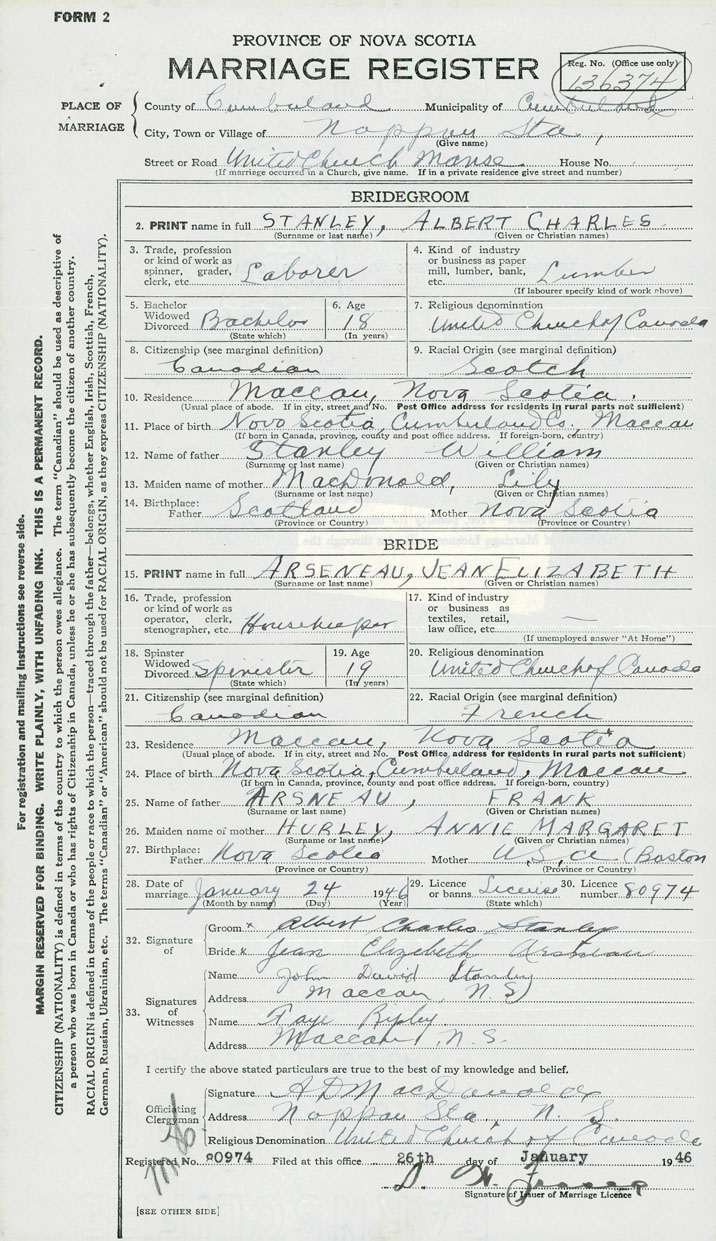 FORM 2
PROVINCE OF NOVA SCOTIA
MARRIAGE REGISTER
Reg. No. (Office use only)
136374
PLACE OF MARRIAGE
County of Cumberland Municipality of Cumberland
City, Town or Village of Nappan Sta.,
(Give name)
Street or Road United Church Manse House No.
(If marriage occurred in a Church, give name. If in a private residence give street and number)
BRIDEGROOM
2. PRINT name in full STANLEY, ALBERT CHARLES
(Surname or last name) (Given or Christian names)
3. Trade, profession or kind of work as spinner, grader, clerk, etc. Laborer
4. Kind of industry or business as paper mill, lumber, bank, etc. Lumber
(If labourer specify kind of work above)
5. Bachelor Widowed Divorced Bachelor
(State which)
6. Age 18
(In years)
7. Religious denomination
United Church of Canada
8. Citizenship (see marginal definition)
Canadian
9. Racial Origin (see marginal definition)
Scotch
10. Residence Maccan, Nova Scotia.
(Usual place of abode. If in city, street and No. Post Office address for residents in rural parts not sufficient)
11. Place of birth Nova Scotia, Cumberland Co., Maccan
(If born in Canada, province, county and post office address. If foreign-born, country)
12. Name of father Stanley William
(Surname or last name) (Given or Christian names)
13. Maiden name of mother MacDonald, Lily
(Surname or last name) (Given or Christian names)
14. Birthplace: Father Scotland Mother Nova Scotia
(Province or Country) (Province or Country)
BRIDE
15. PRINT name in full ARSENEAU, JEAN ELIZABETH
(Surname or last name) (Given or Christian names)
16. Trade, profession or kind of work as operator, clerk, stenographer, etc. Housekeeper
17. Kind of industry or business as textiles, retail, law office, etc. —
(If unemployed answer "At Home")
18. Spinster Widowed Divorced Spinister
(State which)
19. Age 19
(In years)
20. Religious denomination
United Church of Canada
21. Citizenship (see marginal definition)
Canadian
22. Racial Origin (see marginal definition)
French
23. Residence Maccan, Nova Scotia
(Usual place of abode. If in city, street and No. Post Office address for residents in rural parts not sufficient)
24. Place of birth Nova Scotia, Cumberland, Maccan
(If born in Canada, province, county and post office address. If foreign-born, country)
25. Name of father ARSNEAU, FRANK
(Surname or last name) (Given or Christian names)
26. Maiden name of mother HURLEY, ANNIE MARGARET
(Surname or last name) (Given or Christian names)
27. Birthplace: Father Nova Scotia Mother U.S.A (Boston
(Province or Country) (Province or Country)
28. Date of marriage January 24 1946
(Month by name) (Day) (Year)
29. Licence or banns License
(State which)
30. Licence number 80974
32. Signature of
Groom x Albert Charles Stanley
Bride x Jean Elizabeth Arseneau
33. Signatures of Witnesses
Name John David Stanley
Address Maccan, N.S.
Name Faye Ripley
Address Maccan, N.S.
I certify the above stated particulars are true to the best of my knowledge and belief.
Officiating Clergyman
Signature A D MacDonald
Address Nappan Sta, N. S
Religious Denomination United Church of Canada
Registered No. 80974 Filed at this office 26th day of January 1946
Signature of Issuer of Marriage Licence
[SEE OTHER SIDE]
For registration and mailing instructions see reverse side.
MARGIN RESERVED FOR BINDING. WRITE PLAINLY, WITH UNFADING INK. THIS IS A PERMANENT RECORD.
CITIZENSHIP (NATIONALITY) is defined in terms of the country to which the person owes allegiance. The term "Canadian" should be used as descriptive of
a person who was born in Canada or who has rights of Citizenship in Canada, unless he or she has subsequently become the citizen of another country.
RACIAL ORIGIN is defined in terms of the people or race to which the person—traced through the father—belongs, whether English, Irish, Scottish, French,
German, Russian, Ukrainian, etc. The terms "Canadian" or "American" should not be used for RACIAL ORIGIN, as they express CITIZENSHIP (NATIONALITY).